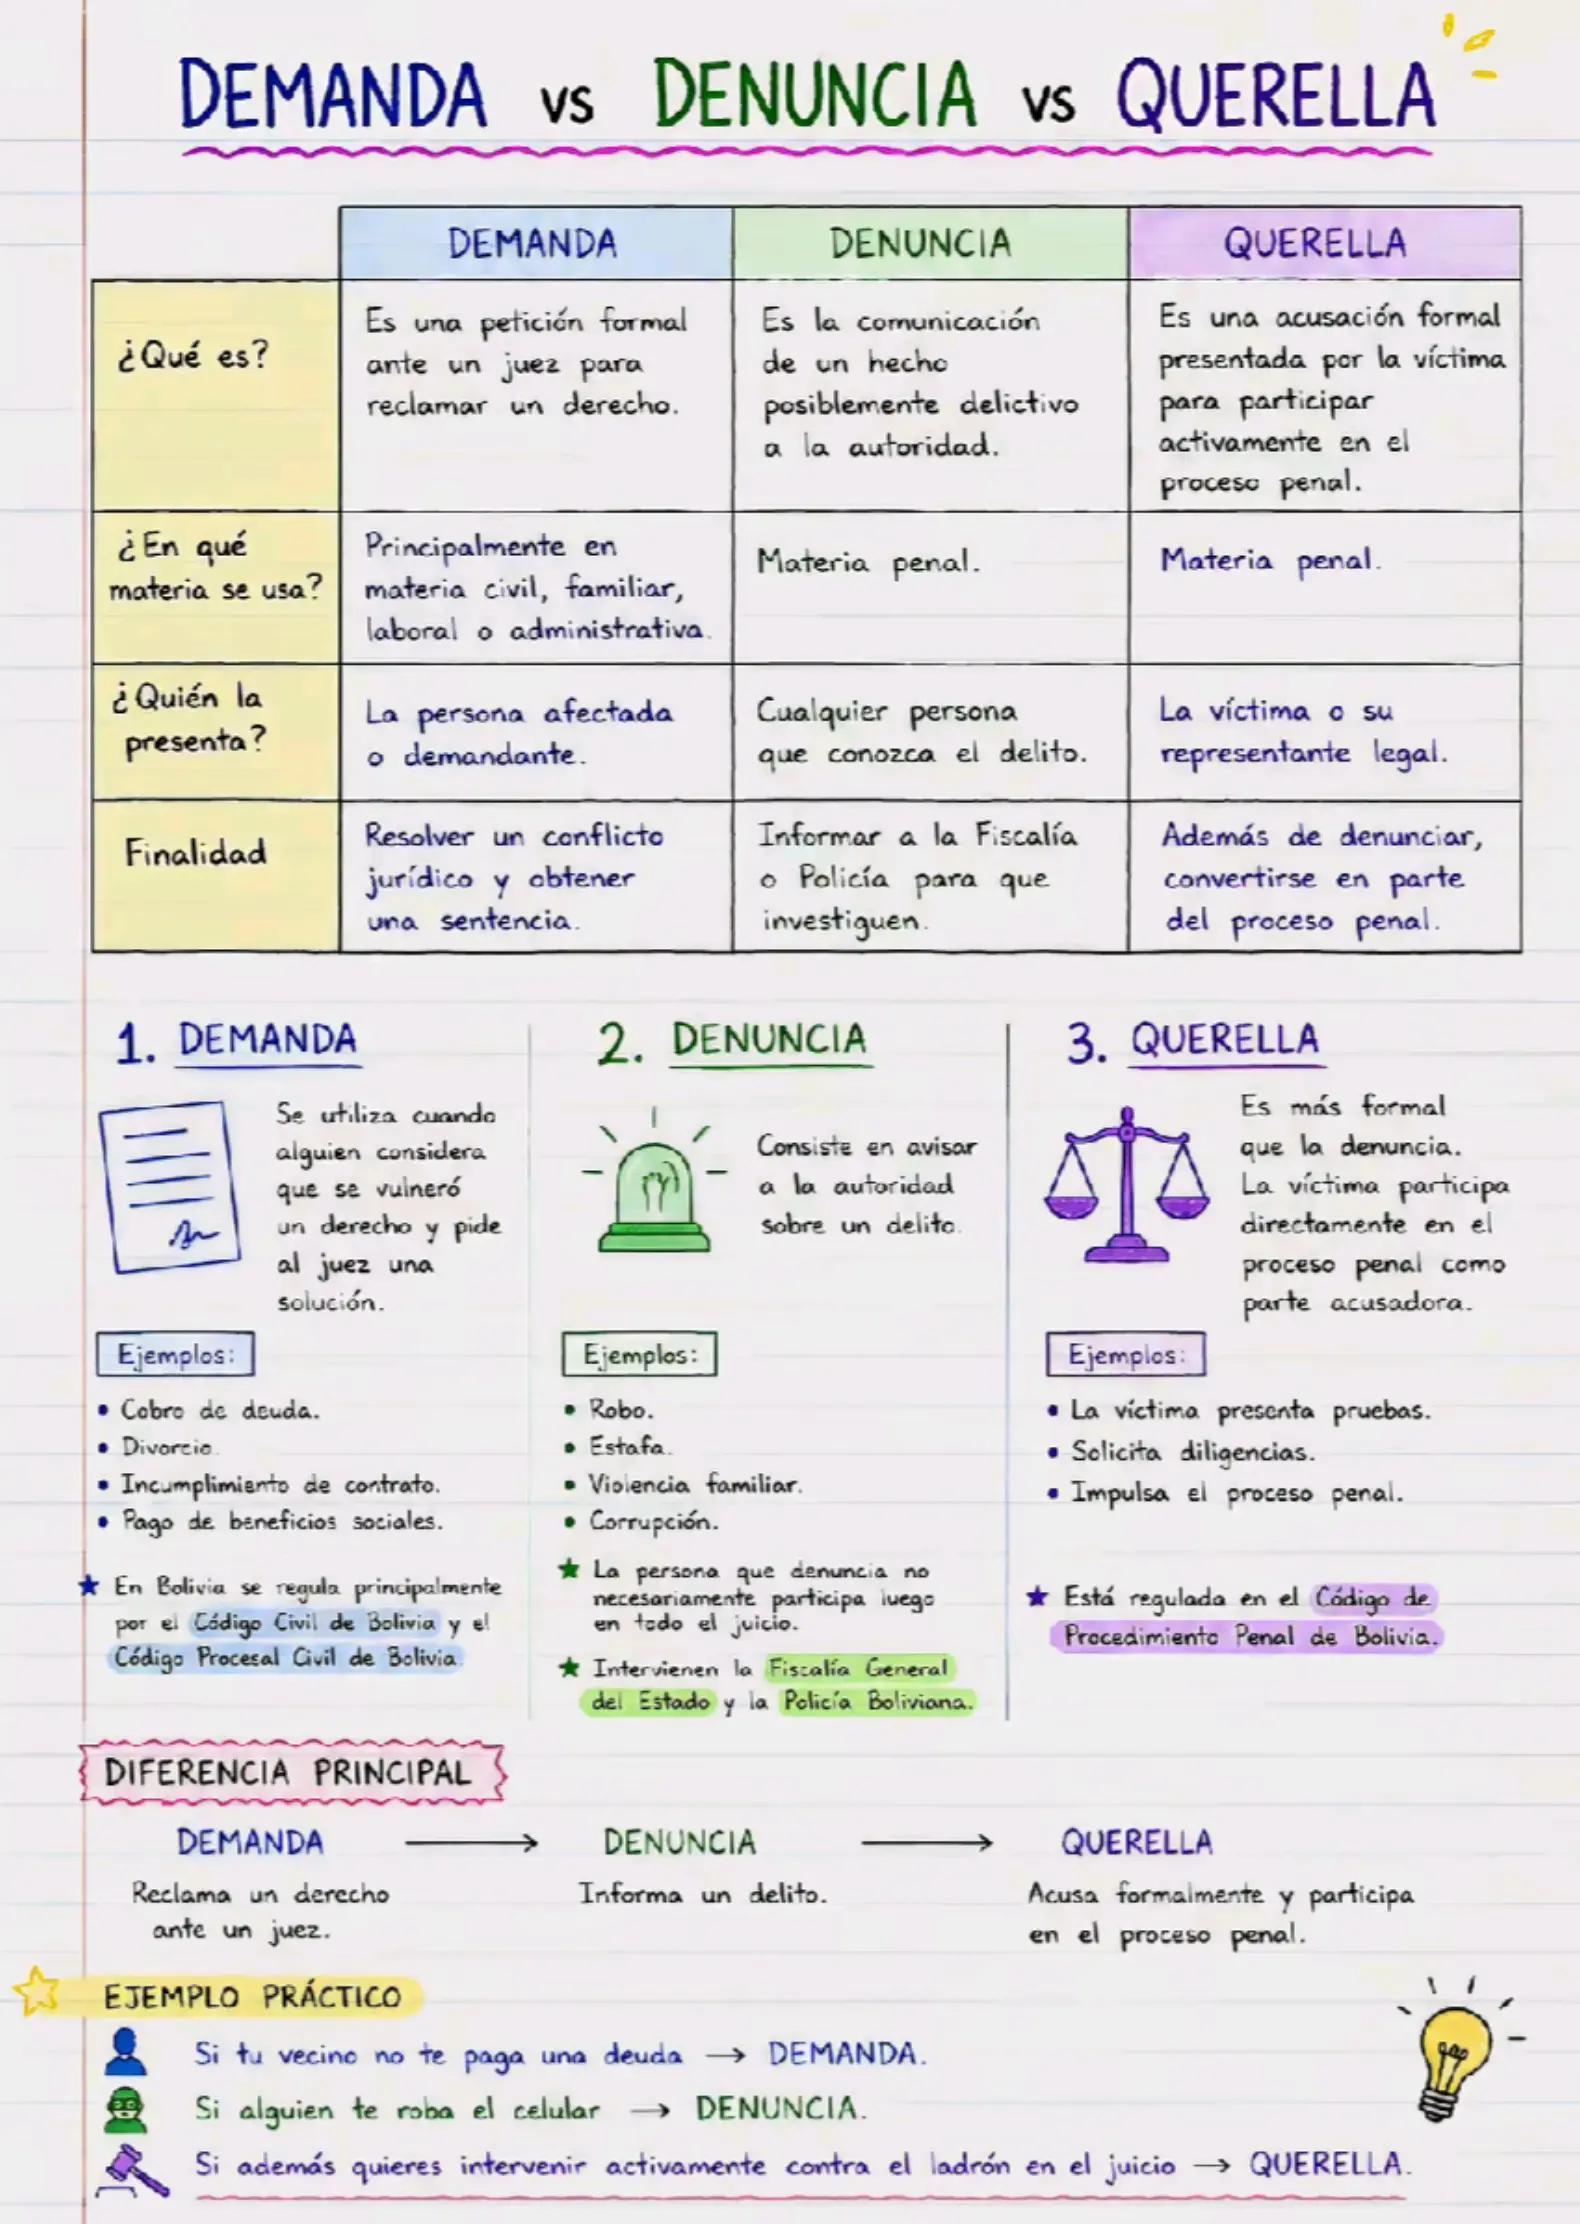 DEMANDA vs DENUNCIA vs QUERELLA
DEMANDA
DENUNCIA
QUERELLA
¿Qué es?
Es una petición formal
ante un juez para
reclamar un derecho.
Es la comunicación
de un hecho
posiblemente delictivo
a la autoridad.
Es una acusación formal
presentada por la víctima
para participar
activamente en el
proceso penal.
¿En qué
materia se usa?
Principalmente en
materia civil, familiar,
laboral o administrativa.
Materia penal.
Materia penal.
¿Quién la
presenta?
La persona afectada
o demandante.
Cualquier persona
que conozca el delito.
La víctima o su
representante legal.
Finalidad
Resolver un conflicto
jurídico y obtener
una sentencia.
Informar a la Fiscalía
o Policía para que
investiguen.
Además de denunciar,
convertirse en parte
del proceso penal.
1. DEMANDA
Se utiliza cuando
alguien considera
que se vulneró
un derecho y pide
al juez una
solución.
Ejemplos:
• Cobro de deuda.
• Divorcio.
• Incumplimiento de contrato.
• Pago de beneficios sociales.
★ En Bolivia se regula principalmente
por el Código Civil de Bolivia y el
Código Procesal Civil de Bolivia.
2. DENUNCIA
Consiste en avisar
a la autoridad
sobre un delito.
Ejemplos:
• Robo.
• Estafa.
• Violencia familiar.
• Corrupción.
★ La persona que denuncia no
necesariamente participa luego
en todo el juicio.
★ Intervienen la Fiscalía General
del Estado y la Policía Boliviana.
3. QUERELLA
Es más formal
que la denuncia.
La víctima participa
directamente en el
proceso penal como
parte acusadora.
Ejemplos:
• La víctima presenta pruebas.
• Solicita diligencias.
• Impulsa el proceso penal.
★ Está regulada en el Código de
Procedimiento Penal de Bolivia.
DIFERENCIA PRINCIPAL
DEMANDA → DENUNCIA → QUERELLA
Reclama un derecho
ante un juez.
Informa un delito.
Acusa formalmente y participa
en el proceso penal.
EJEMPLO PRÁCTICO
Si tu vecino no te paga una deuda → DEMANDA.
Si alguien te roba el celular → DENUNCIA.
Si además quieres intervenir activamente contra el ladrón en el juicio → QUERELLA.